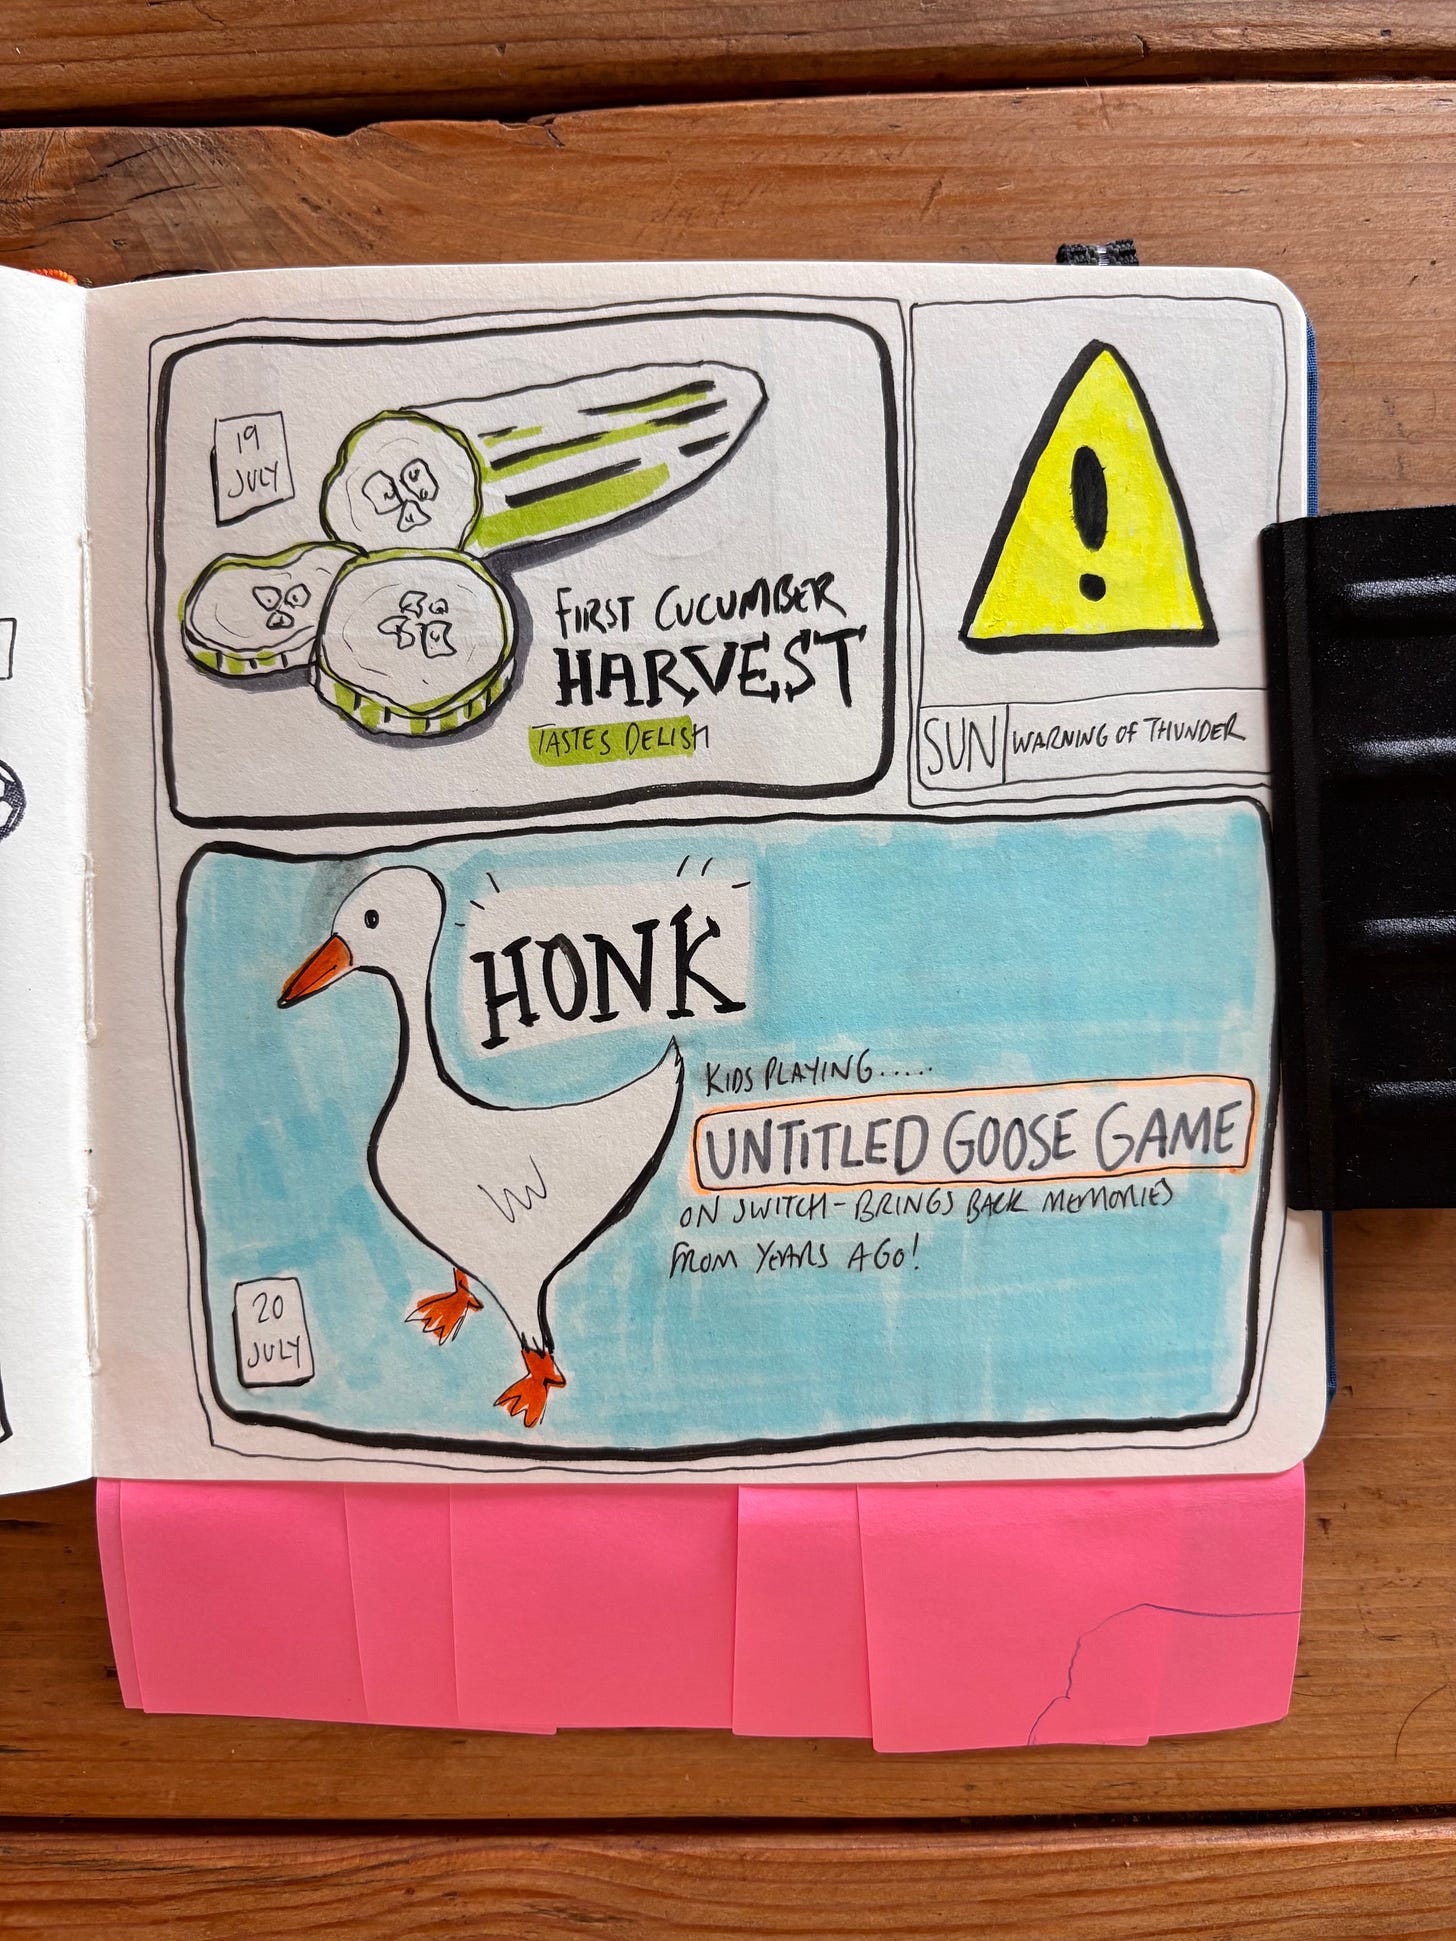 19
JULY
FIRST CUCUMBER
HARVEST
TASTES DELISH
SUN
WARNING OF THUNDER
HONK
KIDS PLAYING.....
UNTITLED GOOSE GAME
ON SWITCH - BRINGS BACK MEMORIES
FROM YEARS AGO!
20
JULY